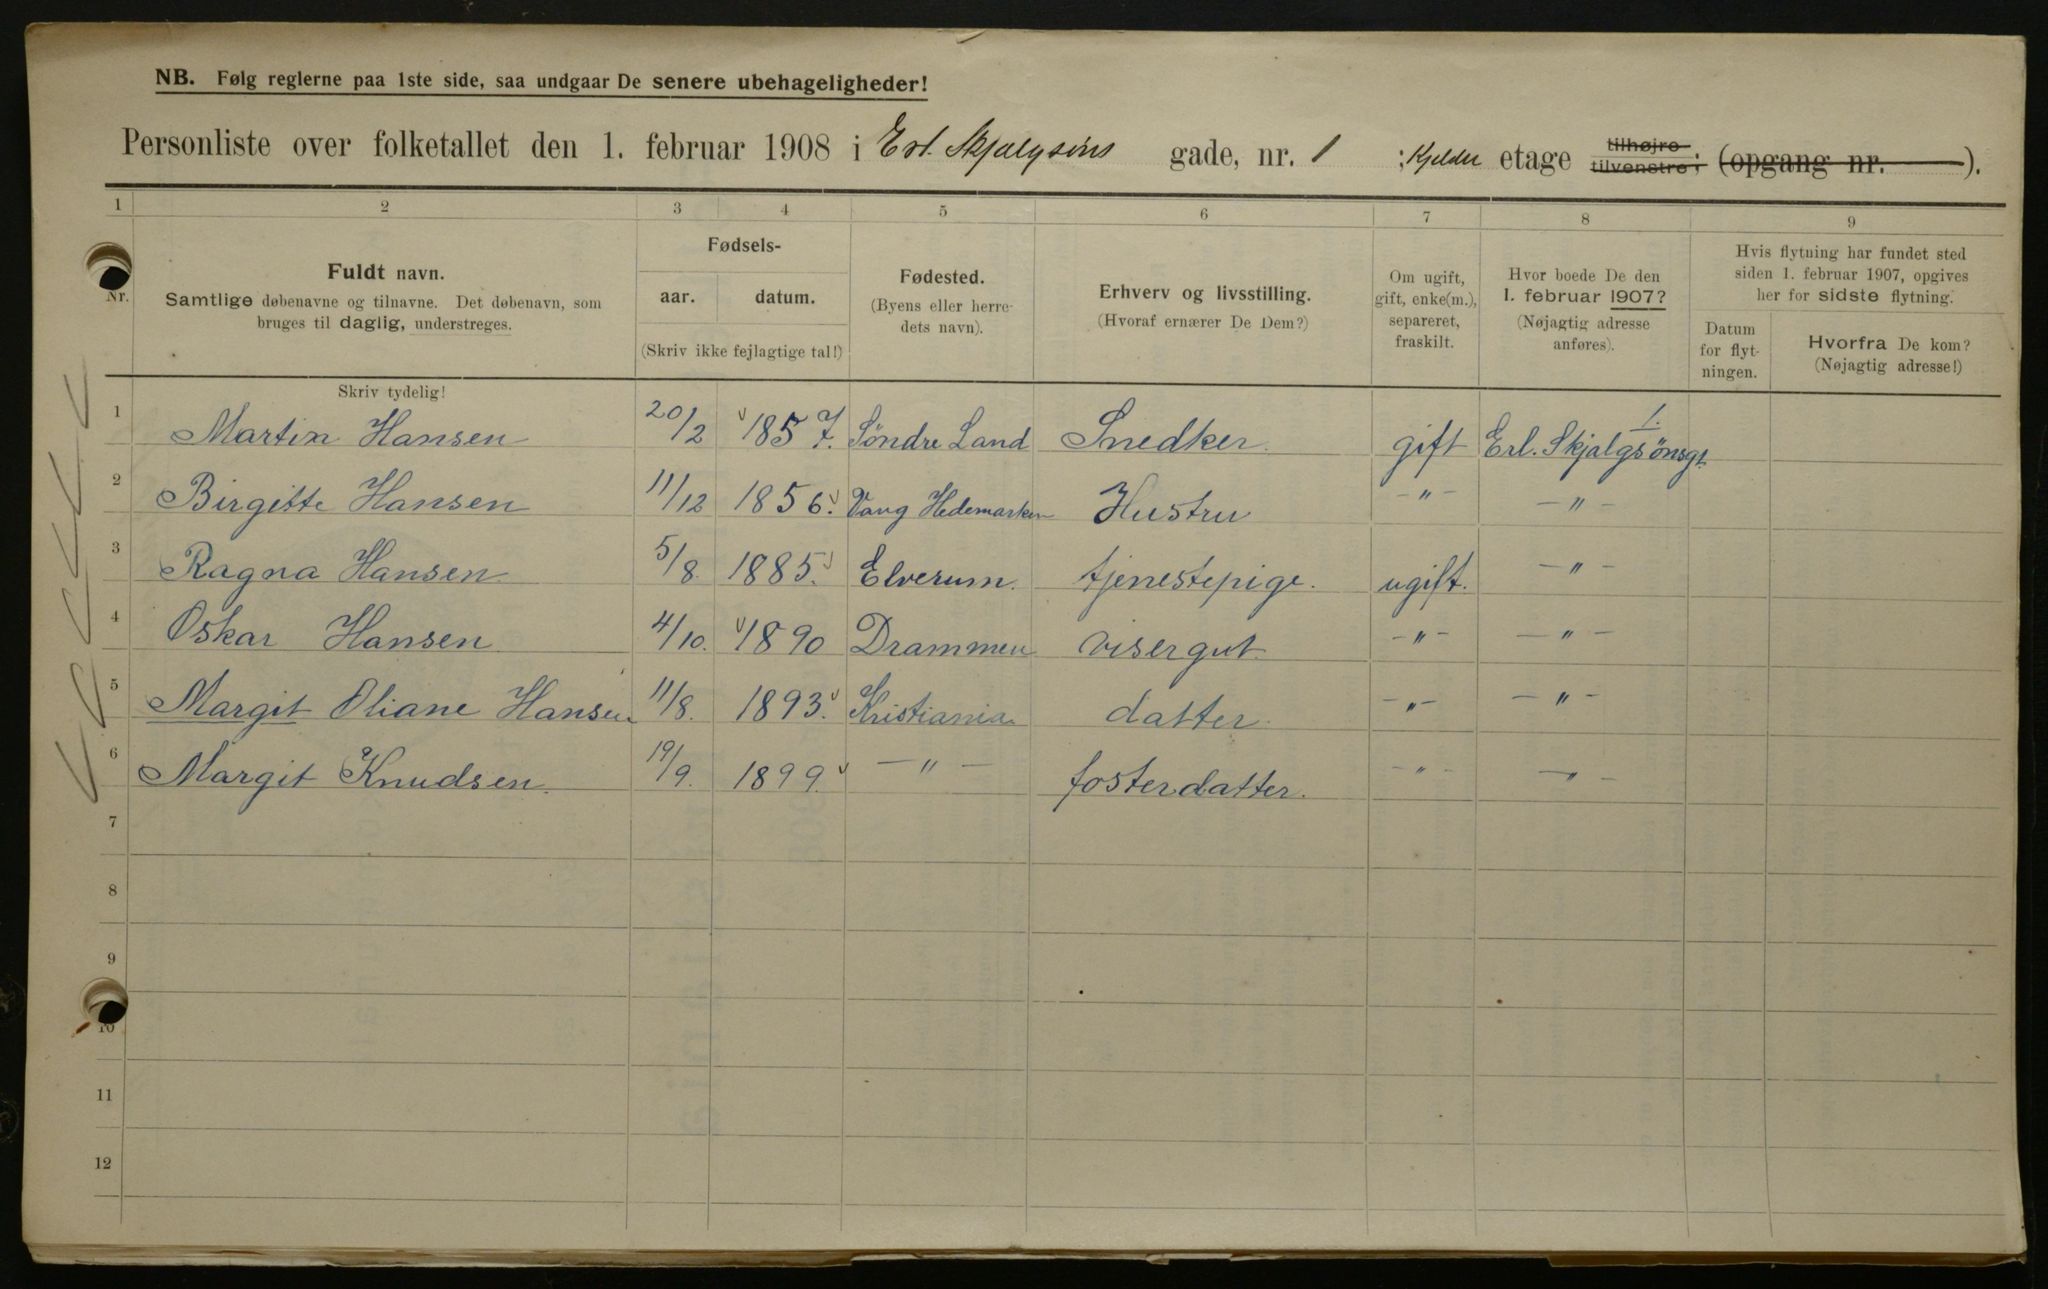 NB. Følg reglerne paa 1ste side, saa undgaar De senere ubehageligheder!
Personliste over folketallet den 1. februar 1908 i Erl. Skjalgsöns gade, nr. 1 ; Kjelder etage tilhøjre tilvenstre; (opgang nr. ).
1 2 3 4 5 6 7 8 9
Nr.
Fuldt navn.
Samtlige døbenavne og tilnavne. Det døbenavn, som
bruges til daglig, understreges.
Skriv tydelig!
Fødsels-
aar. datum.
(Skriv ikke fejlagtige tal!)
Fødested.
(Byens eller herre-
dets navn).
Erhverv og livsstilling.
(Hvoraf ernærer De Dem?)
Om ugift,
gift, enke(m.),
separeret,
fraskilt.
Hvor boede De den
1. februar 1907?
(Nøjagtig adresse
anføres).
Hvis flytning har fundet sted
siden 1. februar 1907, opgives
her for sidste flytning.
Datum
for flyt-
ningen.
Hvorfra De kom?
(Nøjagtig adresse!)
1 Martin Hansen 20/2 1857. Søndre Land Snedker. gift Erl. Skjalgsönsgt. 1.
2 Birgitte Hansen 11/12 1856. Vang Hedemarken Hustru -"- -"-
3 Ragna Hansen 5/8. 1885. Elverum. tjenestepige. ugift. -"-
4 Oskar Hansen 4/10. 1890 Drammen visergut. -"- -"-
5 Margit Oliane Hansen 11/8. 1893. Kristiania datter. -"- -"-
6 Margit Knudsen. 19/9. 1899. -"- fosterdatter. -"- -"-
7
8
9
10
11
12